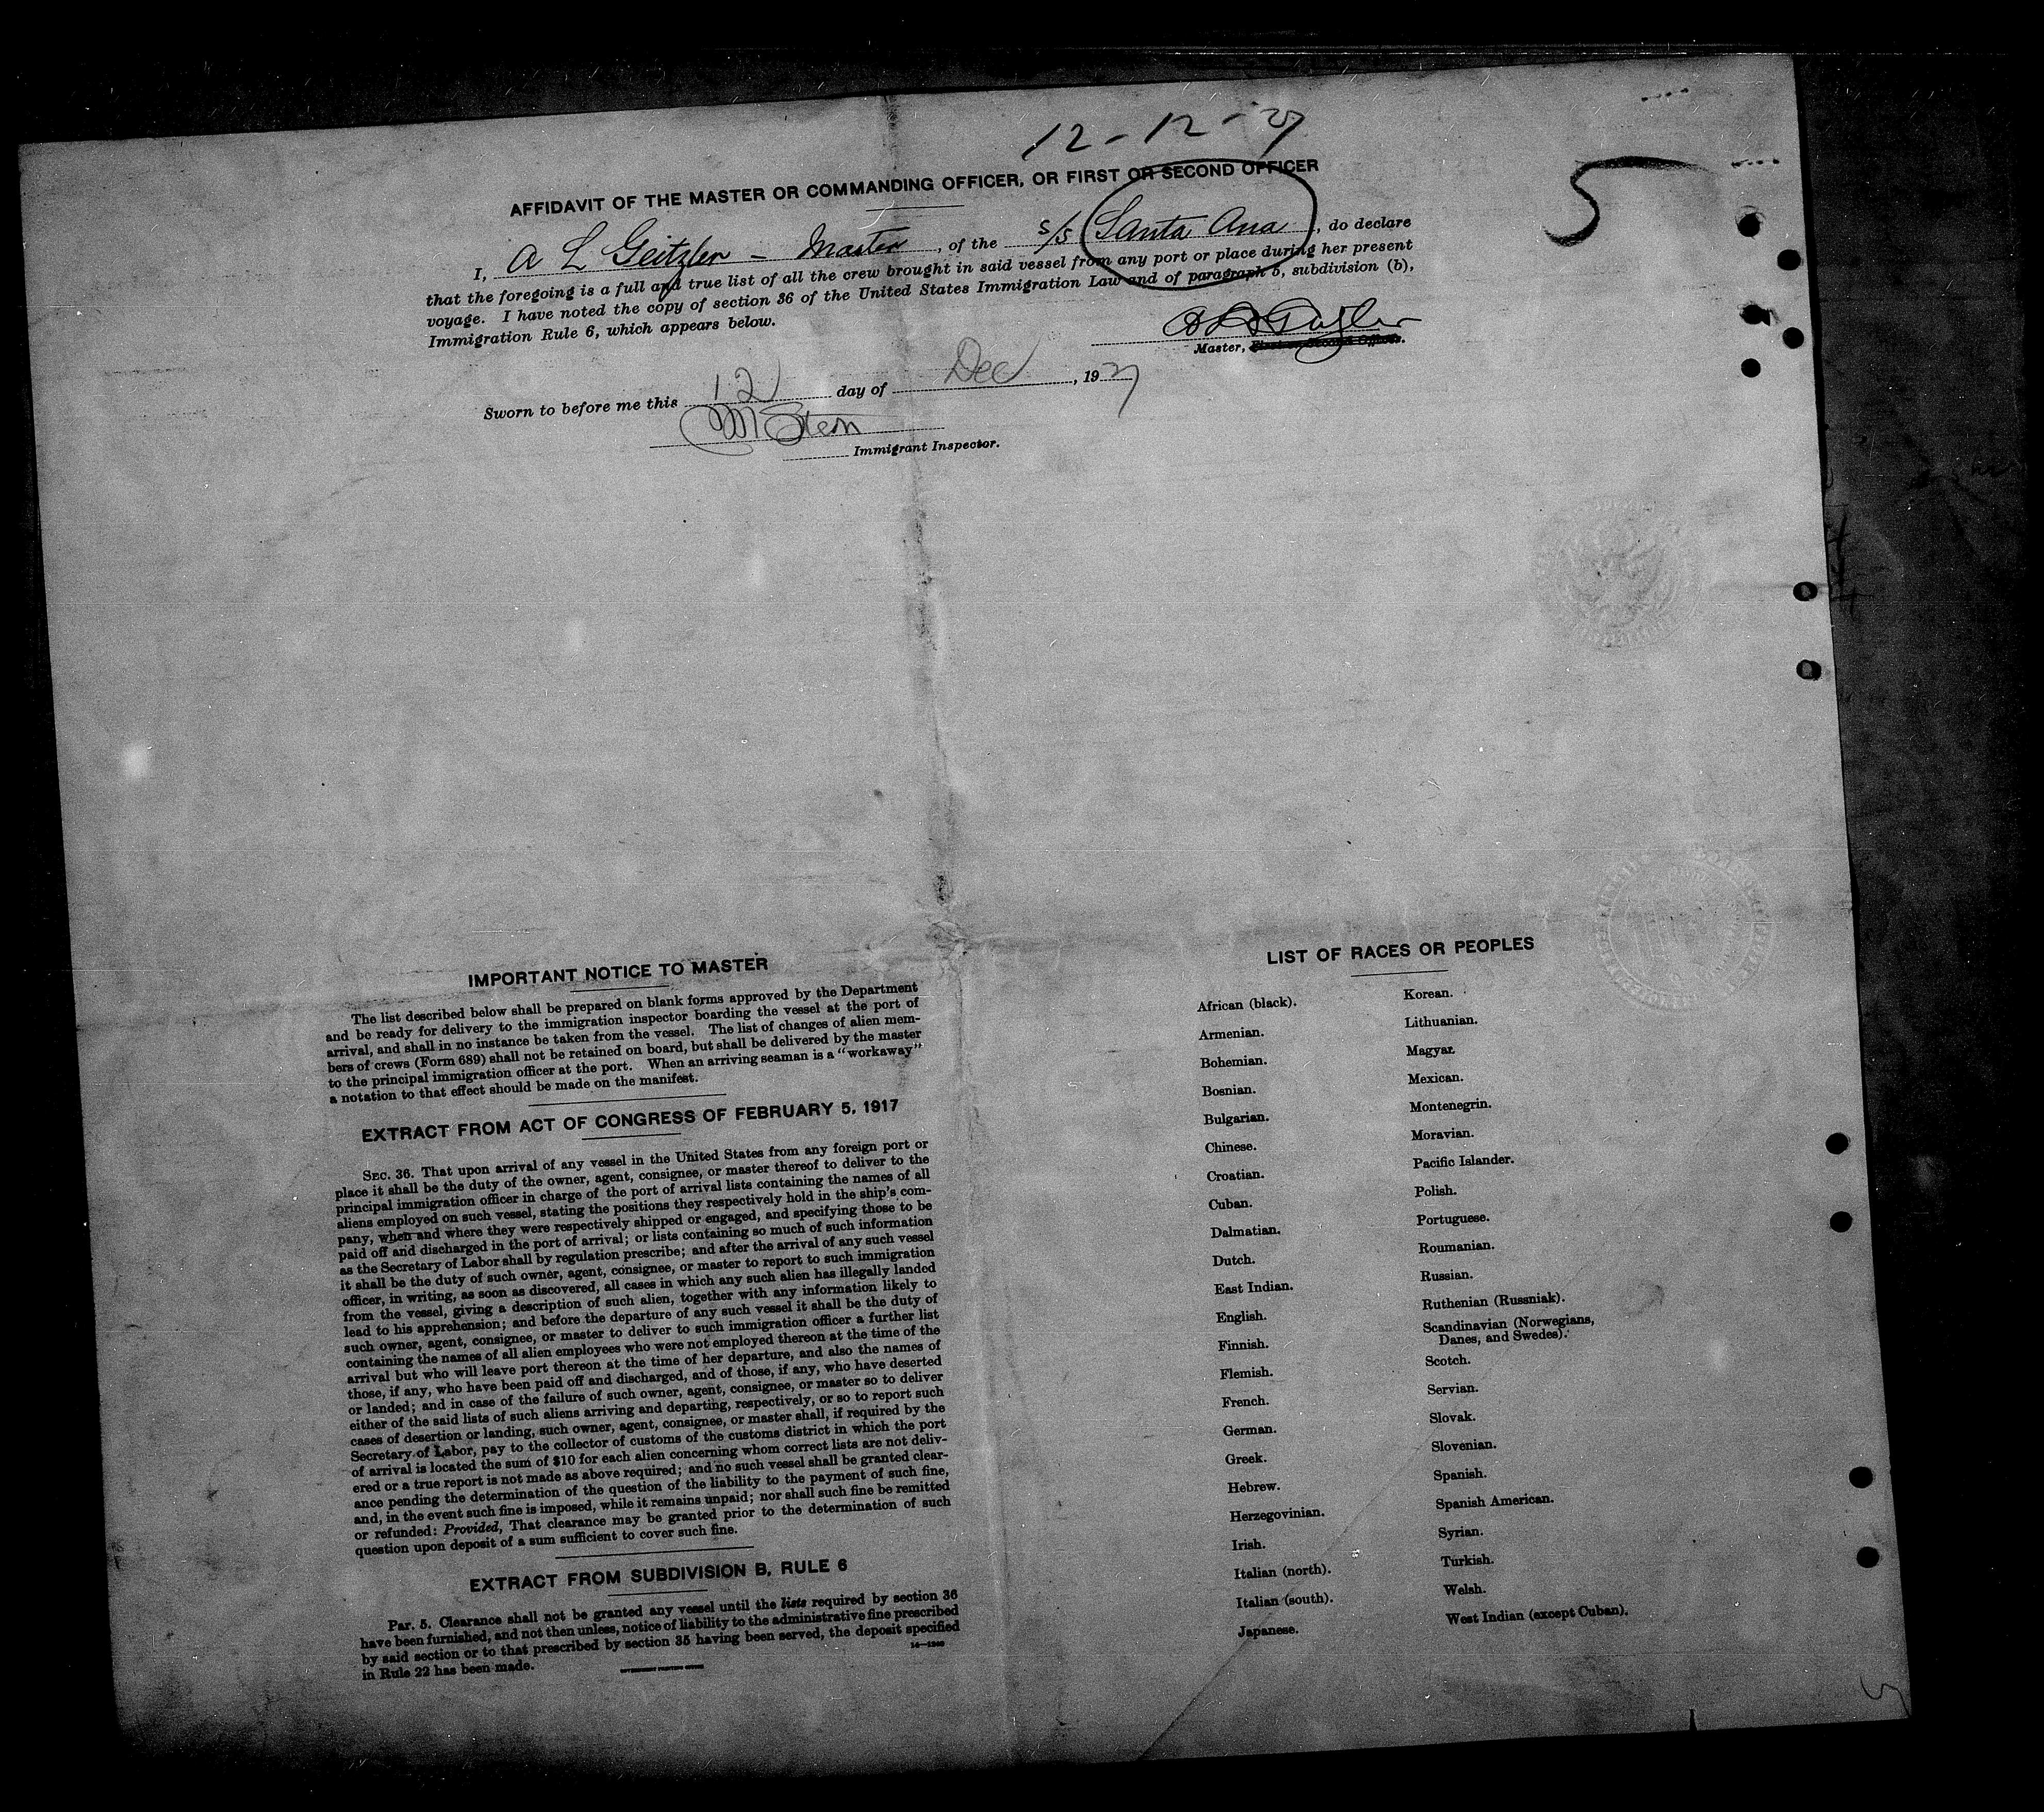 12-12-27
5
AFFIDAVIT OF THE MASTER OR COMMANDING OFFICER, OR FIRST OR SECOND OFFICER
I, A L Geitzler - Master, of the s/s Santa Ana, do declare
that the foregoing is a full and true list of all the crew brought in said vessel from any port or place during her present
voyage. I have noted the copy of section 36 of the United States Immigration Law and of paragraph 5, subdivision (b),
Immigration Rule 6, which appears below.
Master,
Sworn to before me this 12 day of Dec, 1927
Immigrant Inspector.
IMPORTANT NOTICE TO MASTER
The list described below shall be prepared on blank forms approved by the Department
and be ready for delivery to the immigration inspector boarding the vessel at the port of
arrival, and shall in no instance be taken from the vessel. The list of changes of alien mem-
bers of crews (Form 689) shall not be retained on board, but shall be delivered by the master
to the principal immigration officer at the port. When an arriving seaman is a "workaway"
a notation to that effect should be made on the manifest.
EXTRACT FROM ACT OF CONGRESS OF FEBRUARY 5, 1917
SEC. 36. That upon arrival of any vessel in the United States from any foreign port or
place it shall be the duty of the owner, agent, consignee, or master thereof to deliver to the
principal immigration officer in charge of the port of arrival lists containing the names of all
aliens employed on such vessel, stating the positions they respectively hold in the ship's com-
pany, when and where they were respectively shipped or engaged, and specifying those to be
paid off and discharged in the port of arrival; or lists containing so much of such information
as the Secretary of Labor shall by regulation prescribe; and after the arrival of any such vessel
it shall be the duty of such owner, agent, consignee, or master to report to such immigration
officer, in writing, as soon as discovered, all cases in which any such alien has illegally landed
from the vessel, giving a description of such alien, together with any information likely to
lead to his apprehension; and before the departure of any such vessel it shall be the duty of
such owner, agent, consignee, or master to deliver to such immigration officer a further list
containing the names of all alien employees who were not employed thereon at the time of the
arrival but who will leave port thereon at the time of her departure, and also the names of
those, if any, who have been paid off and discharged, and of those, if any, who have deserted
or landed; and in case of the failure of such owner, agent, consignee, or master so to deliver
either of the said lists of such aliens arriving and departing, respectively, or so to report such
cases of desertion or landing, such owner, agent, consignee, or master shall, if required by the
Secretary of Labor, pay to the collector of customs of the customs district in which the port
of arrival is located the sum of $10 for each alien concerning whom correct lists are not deliv-
ered or a true report is not made as above required; and no such vessel shall be granted clear-
ance pending the determination of the question of the liability to the payment of such fine,
and, in the event such fine is imposed, while it remains unpaid; nor shall such fine be remitted
or refunded: Provided, That clearance may be granted prior to the determination of such
question upon deposit of a sum sufficient to cover such fine.
EXTRACT FROM SUBDIVISION B, RULE 6
PAR. 5. Clearance shall not be granted any vessel until the lists required by section 36
have been furnished, and not then unless, notice of liability to the administrative fine prescribed
by said section or to that prescribed by section 35 having been served, the deposit specified
in Rule 22 has been made.
GOVERNMENT PRINTING OFFICE
LIST OF RACES OR PEOPLES
African (black).
Armenian.
Bohemian.
Bosnian.
Bulgarian.
Chinese.
Croatian.
Cuban.
Dalmatian.
Dutch.
East Indian.
English.
Finnish.
Flemish.
French.
German.
Greek.
Hebrew.
Herzegovinian.
Irish.
Italian (north).
Italian (south).
Japanese.
Korean.
Lithuanian.
Magyar.
Mexican.
Montenegrin.
Moravian.
Pacific Islander.
Polish.
Portuguese.
Roumanian.
Russian.
Ruthenian (Russniak).
Scandinavian (Norwegians,
Danes, and Swedes).
Scotch.
Servian.
Slovak.
Slovenian.
Spanish.
Spanish American.
Syrian.
Turkish.
Welsh.
West Indian (except Cuban).